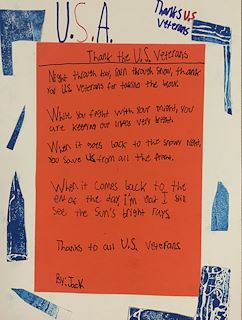 U.S.A.
Thanks U.S
Veterans
Thank the U.S. Veterans
Night through day, rain through snow, thank
you U.S Veterans for taking the
While you fight with your might, you
are keeping our lights very bright.
When it goes back to the snow night,
you save us from all the
When it comes back to the
end of the day, i'm that I still
see the Sun's bright rays.
Thanks to all U.S. Veterans
By: Jack